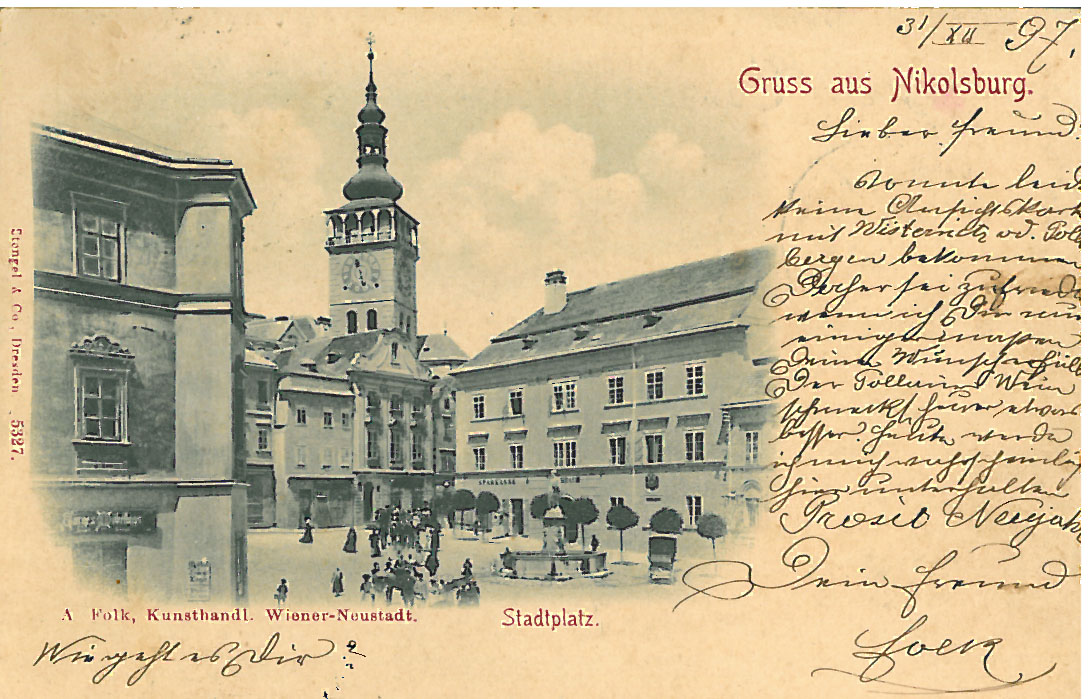 31/XII 97.
Gruss aus Nikolsburg.
Lieber Freund!
Konnte leid
keine Ansichtskart
mit Wisternitz od. Poll
bergen bekommen
Daher sei zufried
wenn ich Dir nur
einigermassen
Deine Wünsche füll
Der Pollauer Wein
schmeckt heuer etwas
besser. Heute werde
ich mich wahrscheinlich
hier unterhalten
Prosit Neujah
Dein Freund
Stengel & Co., Dresden 5327.
SPARKASSE
A Folk, Kunsthandl. Wiener-Neustadt.
Stadtplatz.
Wie geht es Dir?